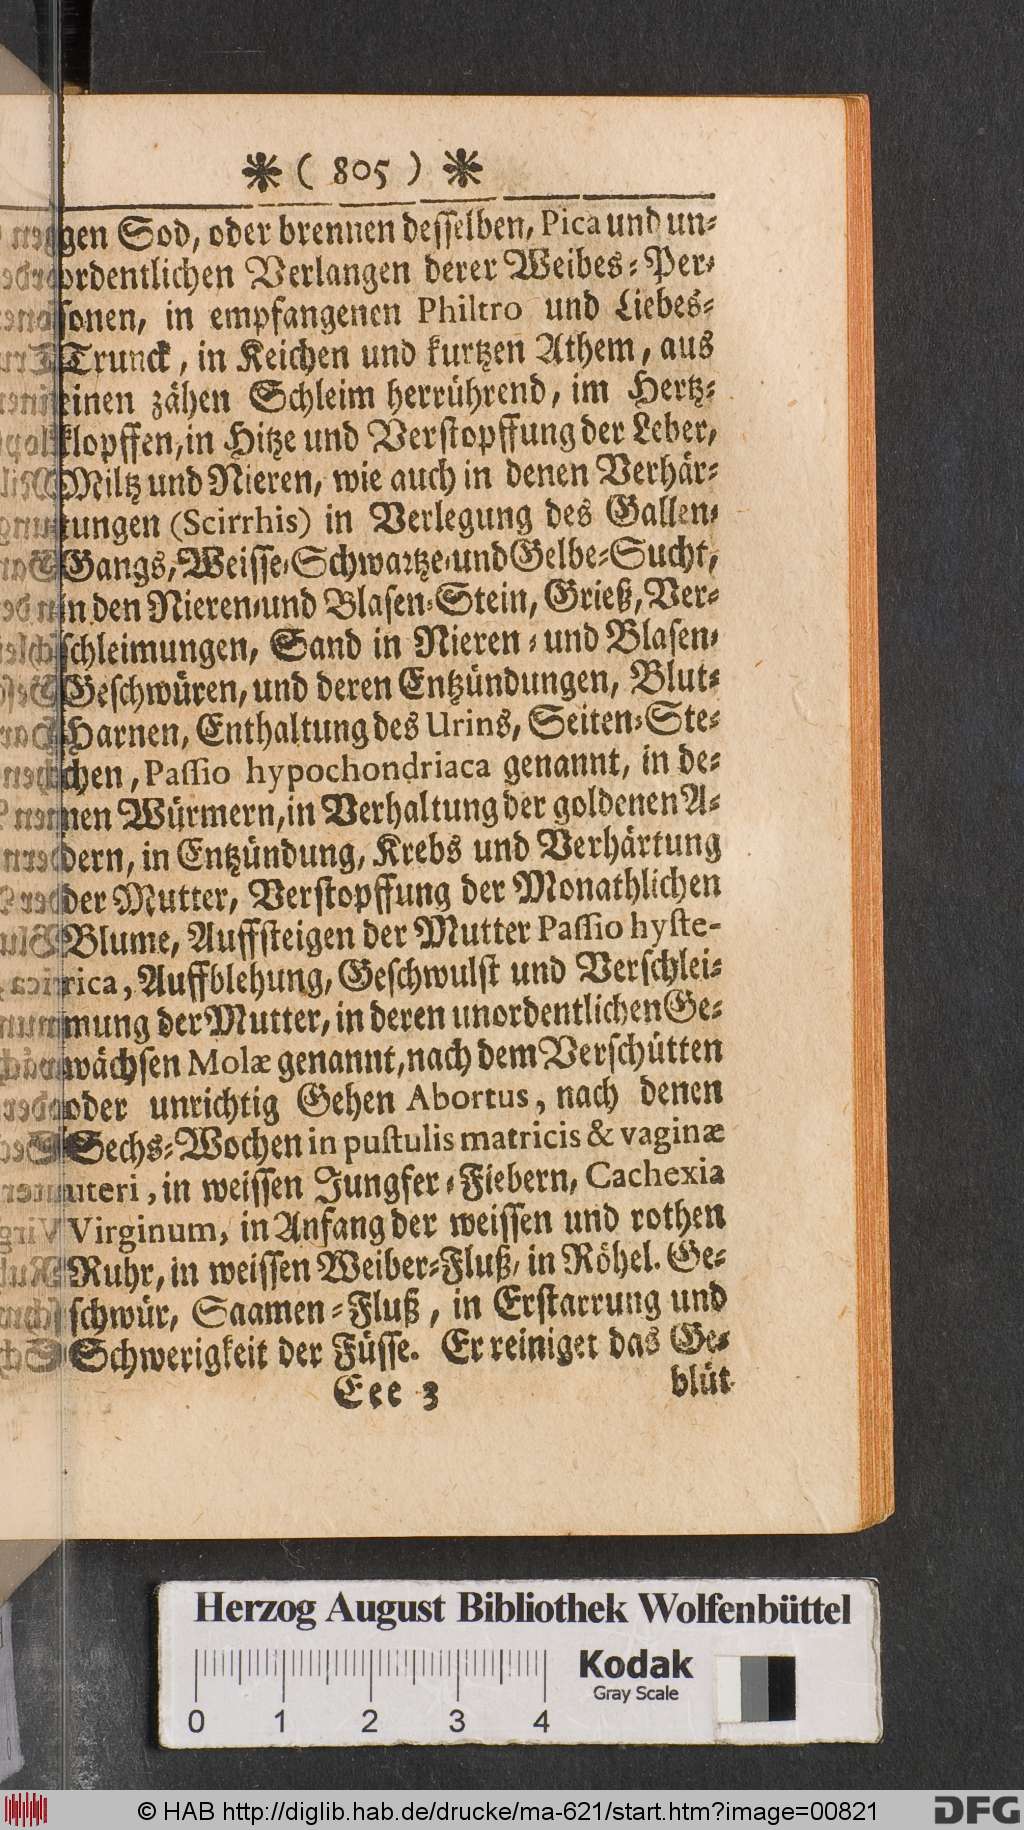 * ( 805 ) *
gen Sod, oder brennen desselben, Pica und un-
ordentlichen Verlangen derer Weibes-Per-
sonen, in empfangenen Philtro und Liebes-
Trunck, in Keichen und kurtzen Athem, aus
einen zähen Schleim herrührend, im Hertz-
klopffen, in Hitze und Verstopffung der Leber,
Miltz und Nieren, wie auch in denen Verhär-
tungen (Scirrhis) in Verlegung des Gallen-
Gangs, Weisse-Schwartze-und Gelbe-Sucht,
in den Nieren-und Blasen-Stein, Grieß, Ver-
schleimungen, Sand in Nieren-und Blasen-
Geschwüren, und deren Entzündungen, Blut-
Harnen, Enthaltung des Urins, Seiten-Ste-
chen, Passio hypochondriaca genannt, in de-
nen Würmern, in Verhaltung der goldenen A-
dern, in Entzündung, Krebs und Verhärtung
der Mutter, Verstopffung der Monathlichen
Blume, Auffsteigen der Mutter Passio hyste-
rica, Auffblehung, Geschwulst und Verschlei-
mung der Mutter, in deren unordentlichen Ge-
wächsen Molæ genannt, nach dem Verschütten
oder unrichtig Gehen Abortus, nach denen
Sechs-Wochen in pustulis matricis & vaginæ
uteri, in weissen Jungfer-Fiebern, Cachexia
Virginum, in Anfang der weissen und rothen
Ruhr, in weissen Weiber-Fluß, in Röhel. Ge-
schwür, Saamen-Fluß, in Erstarrung und
Schwerigkeit der Füsse. Er reiniget das Ge-
Eee 3 blüt
Herzog August Bibliothek Wolfenbüttel
Kodak
Gray Scale
0 1 2 3 4
© HAB http://diglib.hab.de/drucke/ma-621/start.htm?image=00821
DFG